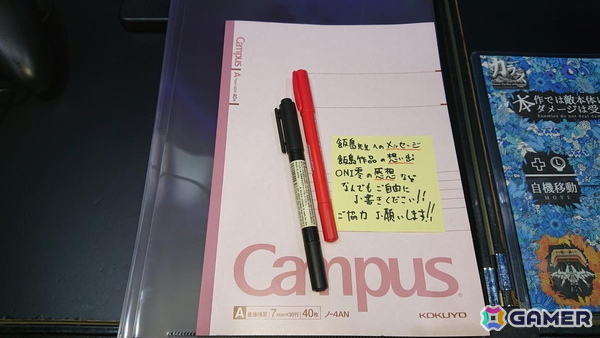 Campus A
飯島先生へのメッセージ
飯島作品の想い出
ONI零の感想など
なんでもご自由に
お書きください!!
ご協力お願いします!!
Campus
A 普通横罫 7mm×30行 40枚 ノ-4AN
KOKUYO
カラス
本作では敵本体に
ダメージは受
Enemies do not deal da
自機移動
MOVE
GAMER